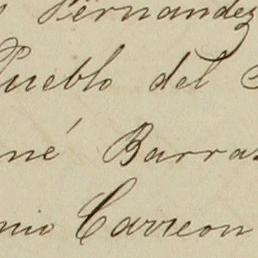 Fernandez
Pueblo del
né Barras
nio Carreon